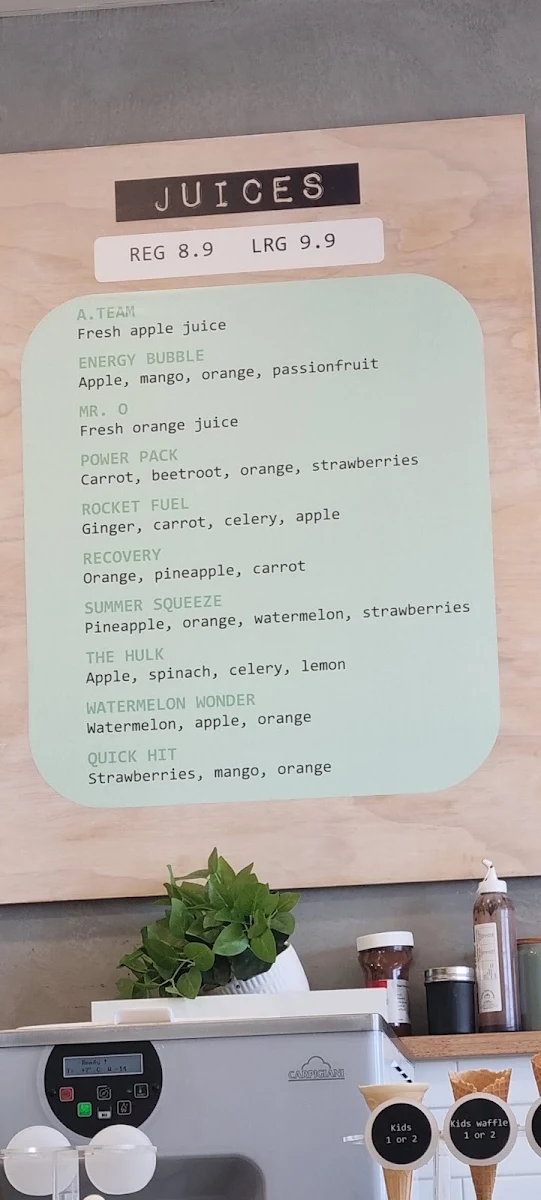 JUICES
REG 8.9 LRG 9.9
A.TEAM
Fresh apple juice
ENERGY BUBBLE
Apple, mango, orange, passionfruit
MR. O
Fresh orange juice
POWER PACK
Carrot, beetroot, orange, strawberries
ROCKET FUEL
Ginger, carrot, celery, apple
RECOVERY
Orange, pineapple, carrot
SUMMER SQUEEZE
Pineapple, orange, watermelon, strawberries
THE HULK
Apple, spinach, celery, lemon
WATERMELON WONDER
Watermelon, apple, orange
QUICK HIT
Strawberries, mango, orange
Ready
CARPIGIANI
Kids
1 or 2
Kids waffle
1 or 2